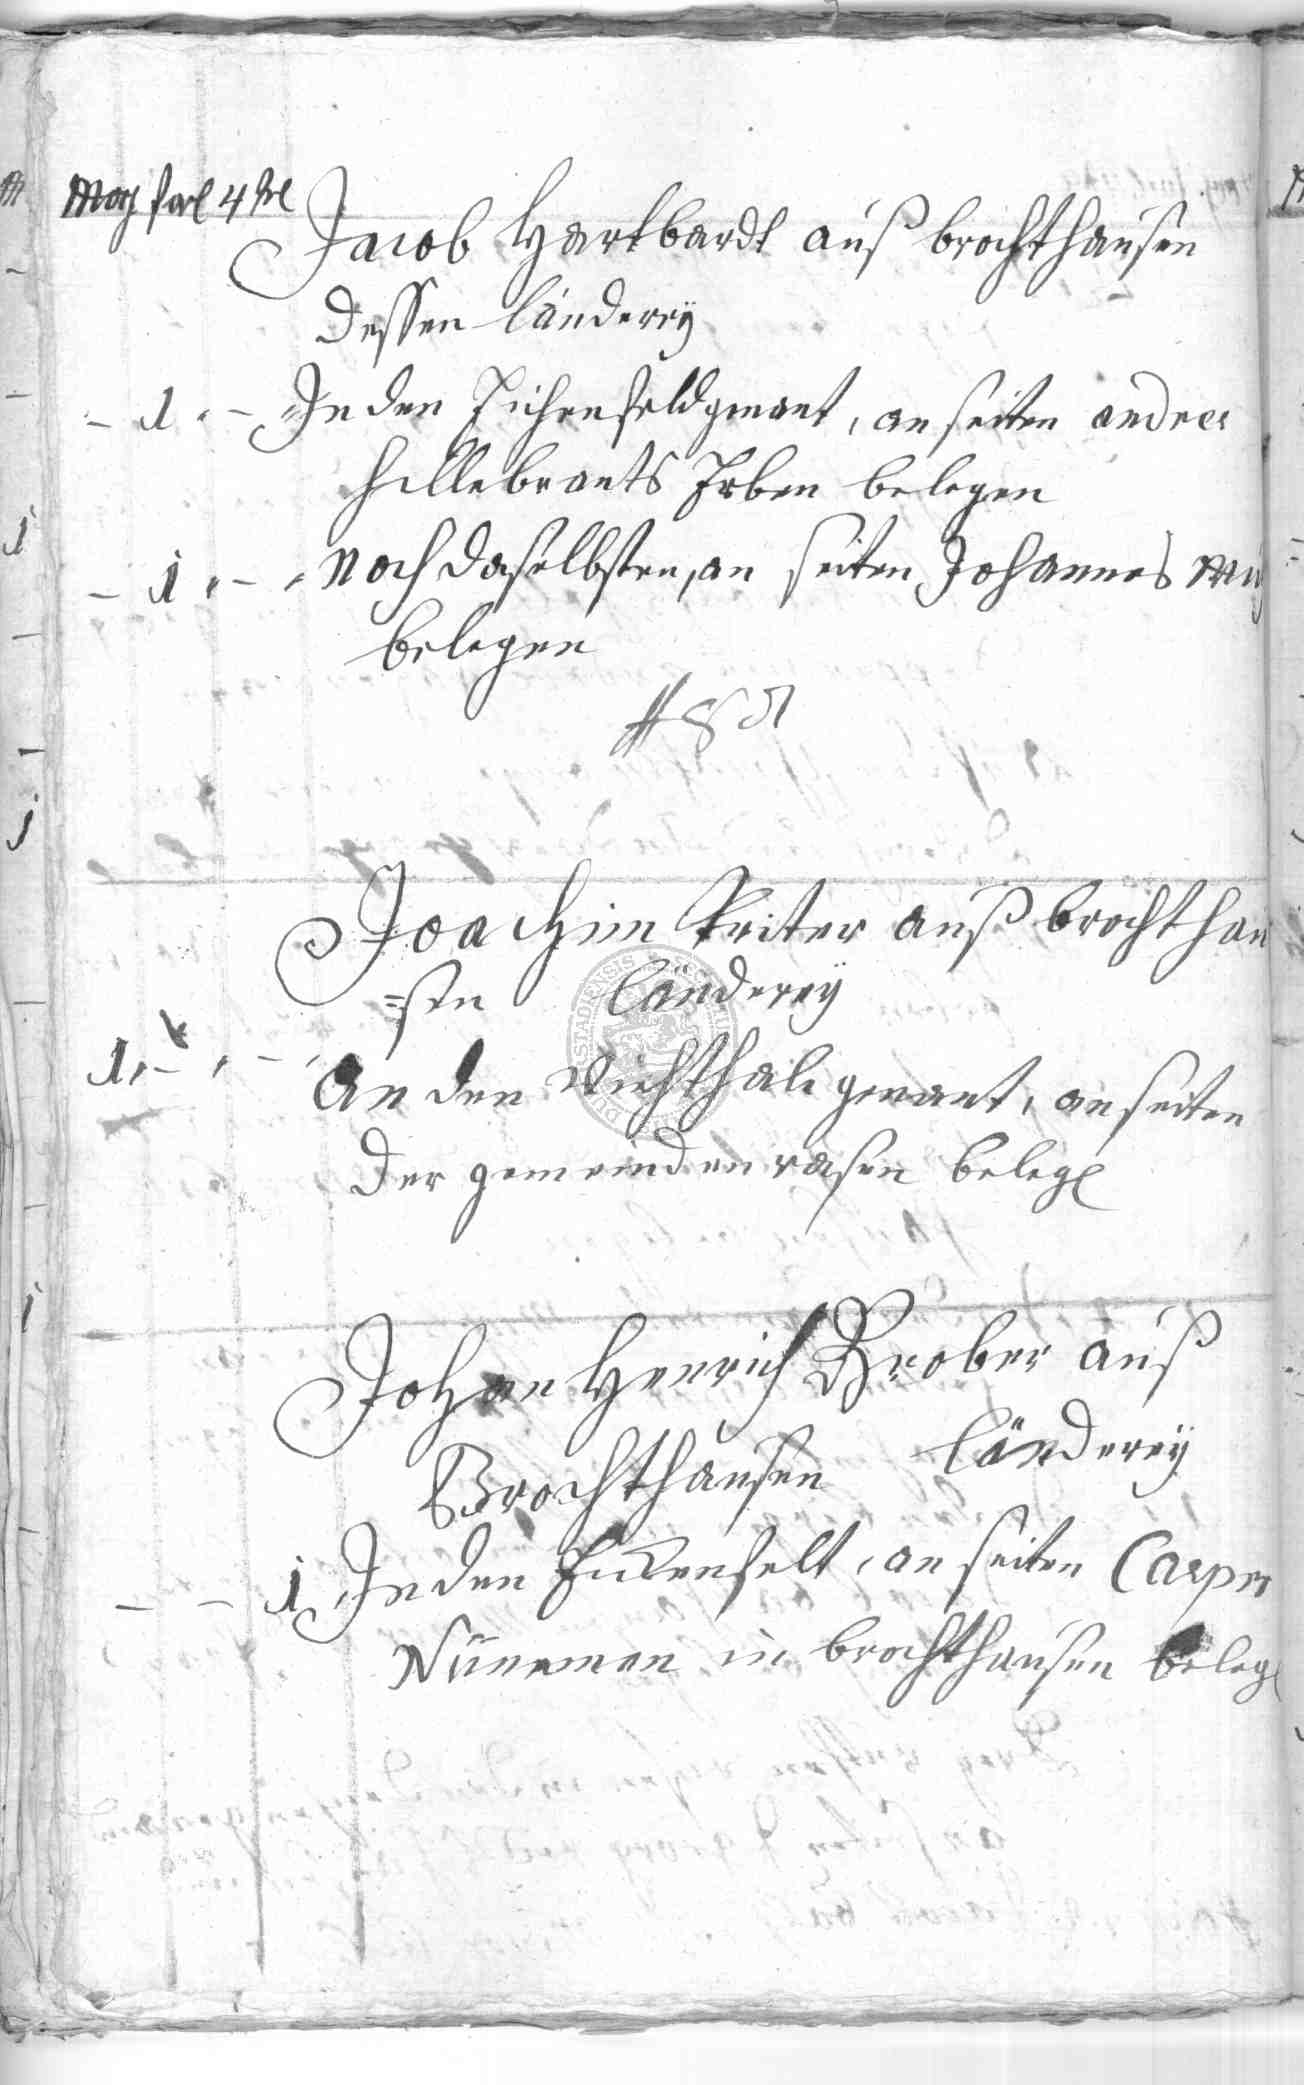 Morg 4
Jacob Hartbardt auß brochthausen
dessen länderey
- 1 - - In den genant, an seiten
Hillebrants Erben belegen
- 1 - - Noch daselbsten, an seiten Johannes
belegen
Joachim auß brochthau
=sen länderey
1 - - An den Viehthale genant, an seiten
der gemeinden rasen beleg
Johan Henrich Grober auß
Brochthausen länderey
- - 1 In den, an seiten Casper
Nünemen in brochthausen beleg
STADIENSIS